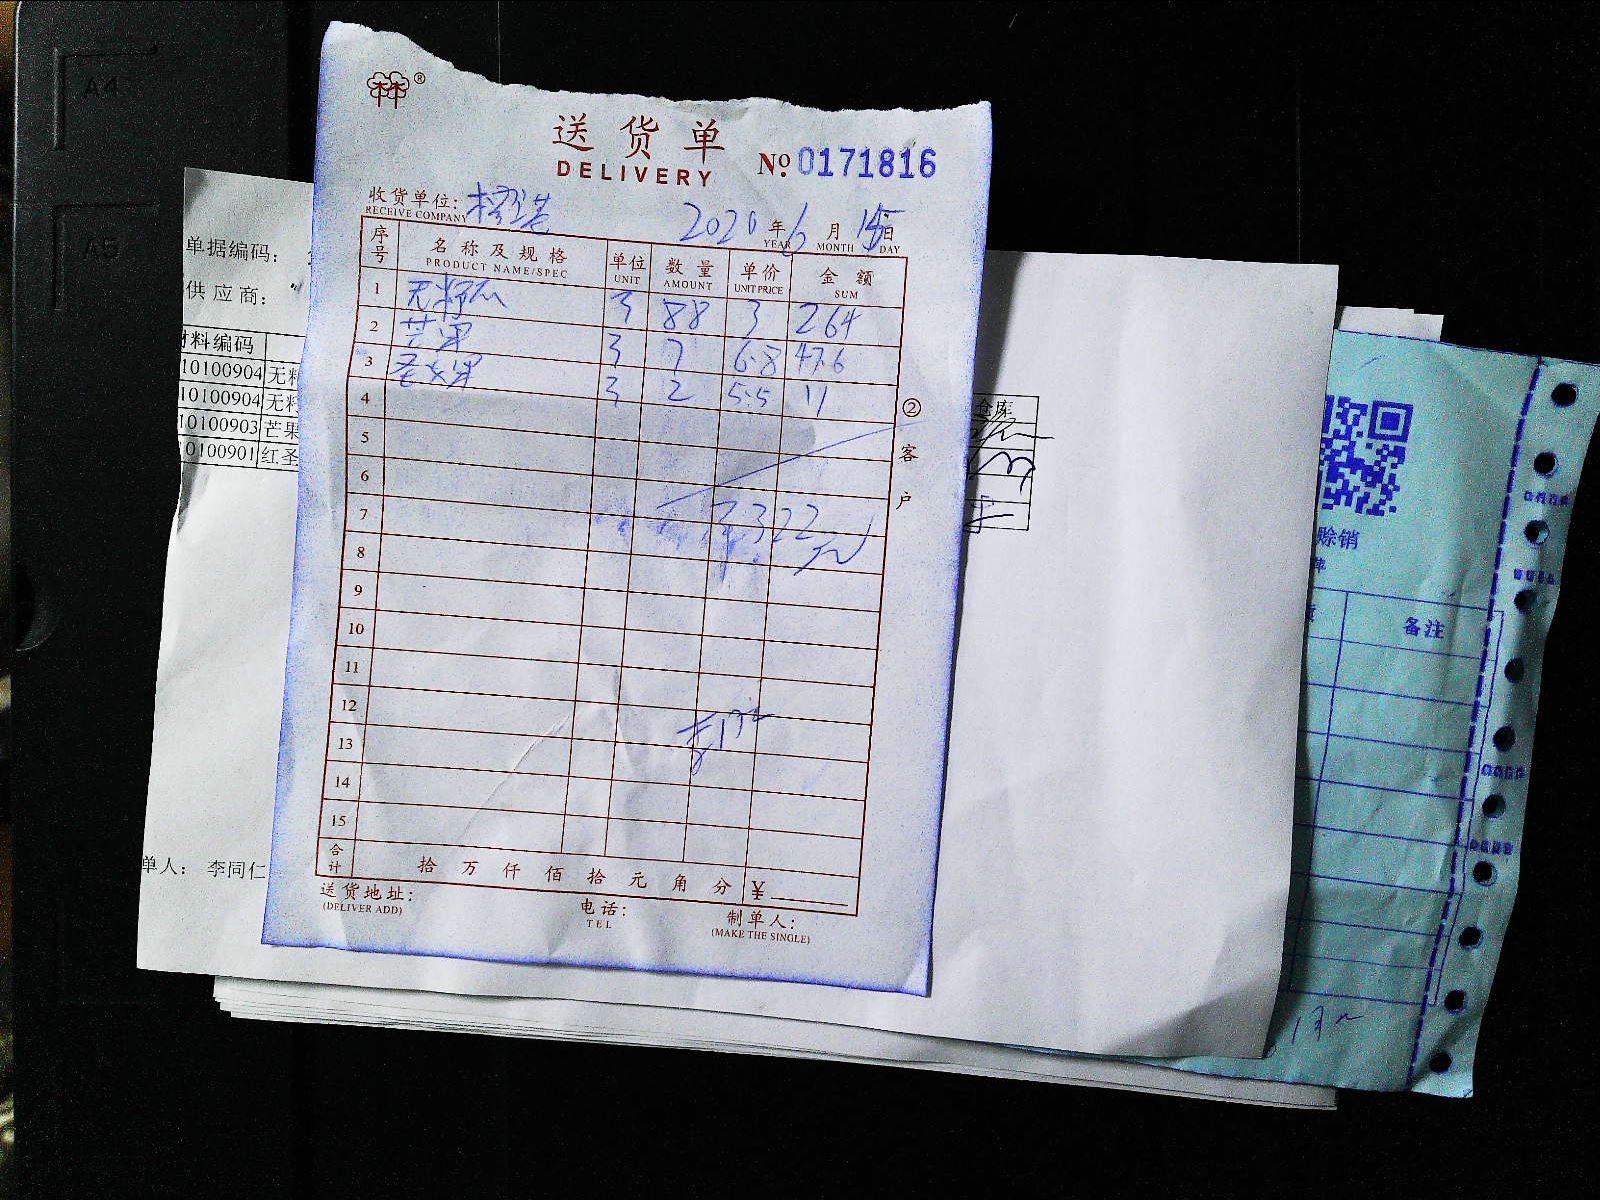 A4
A5
送货单
DELIVERY
№ 0171816
收货单位:
RECEIVE COMPANY
2020 年 6 月 15 日
YEAR MONTH DAY
序号 名称及规格 单位 数量 单价 金额
PRODUCT NAME/SPEC UNIT AMOUNT UNIT PRICE SUM
1 无籽瓜 3 88 3 264
2 芒果 3 7 6.8 47.6
3 圣女果 3 2 5.5 11
4
5
6
7 322元
8
9
10
11
12
13
14
15
合计 拾 万 仟 佰 拾 元 角 分 ¥
送货地址:
(DELIVER ADD)
电话:
TEL
制单人:
(MAKE THE SINGLE)
② 客户
单据编码:
供应商:
材料编码
10100904 无籽
10100904 无籽
10100903 芒果
10100901 红圣
单人: 李同仁
仓库
赊销
备注